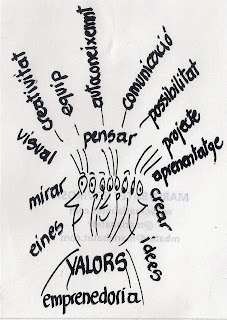 eines
mirar
visual
creativitat
equip
autoconeixemnt
pensar
comunicació
possibilitat
projecte
aprenentatge
crear
idees
VALORS
emprenedoria